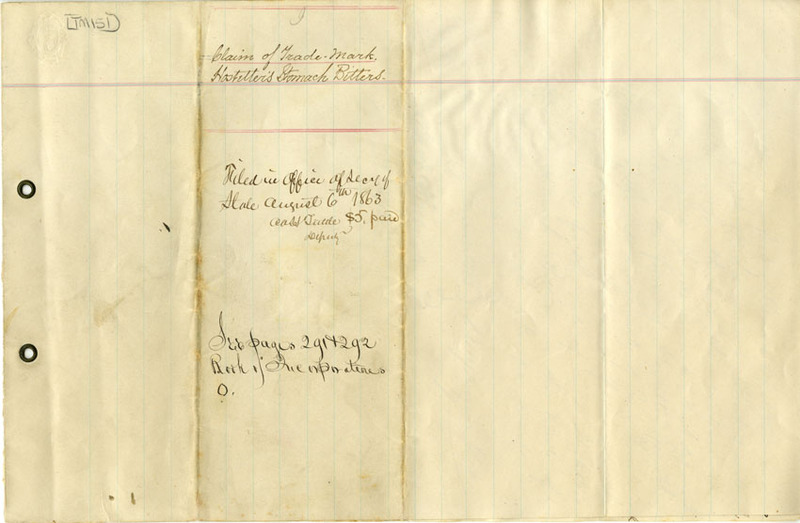 TM151
Claim of Trade-Mark.
Hostetter's Stomach Bitters.
Filed in Office of Secy of
State August 6th 1863
$5. paid
Deputy
pages 291 & 292
Book of Incorporations